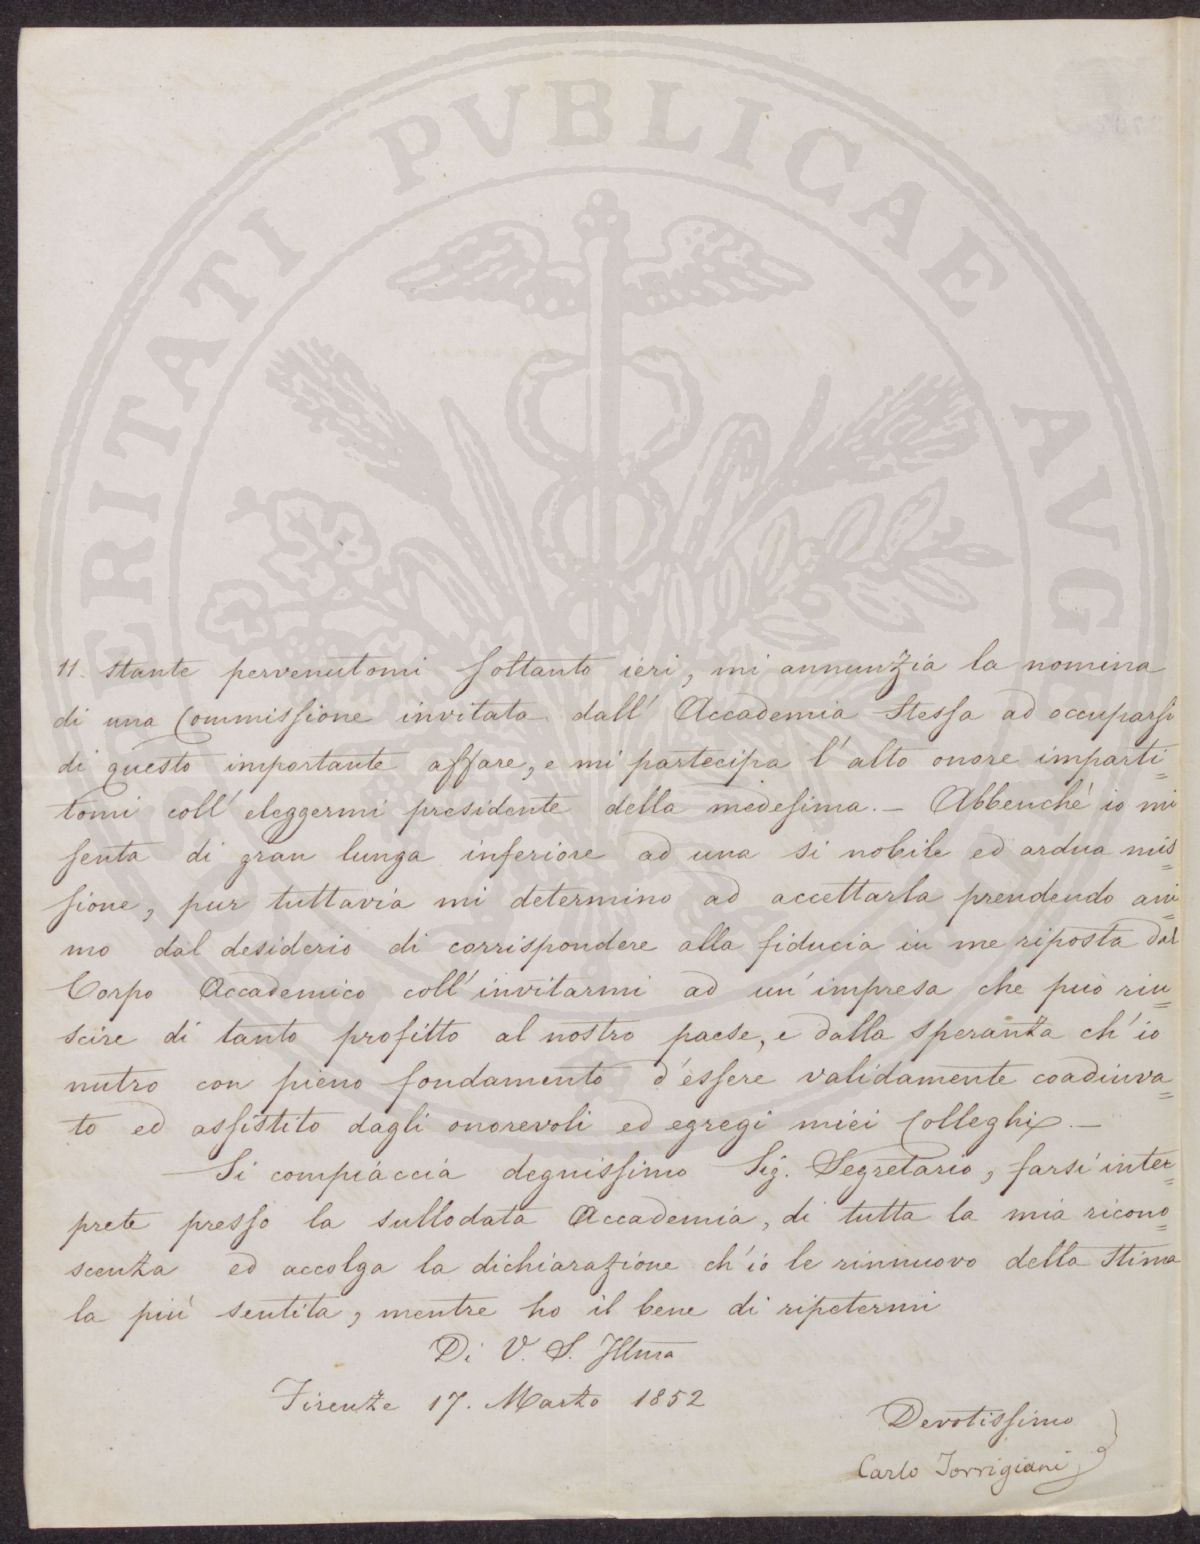 PROSPERITATI PVBLICAE AVGENDAE
11. stante pervenutomi soltanto ieri, mi annunzia la nomina
di una Commissione invitata dall' Accademia Stessa ad occuparsi
di questo importante affare, e mi partecipa l'alto onore imparti=
tomi coll' eleggermi presidente della medesima. – Abbenché io mi
senta di gran lunga inferiore ad una si nobile ed ardua mis=
sione, pur tuttavia mi determino ad accettarla prendendo ani=
mo dal desiderio di corrispondere alla fiducia in me riposta dal
Corpo Accademico coll' invitarmi ad un' impresa che può riu=
scire di tanto profitto al nostro paese, e dalla speranza ch' io
nutro con pieno fondamento d'essere validamente coadiuva=
to ed assistito dagli onorevoli ed egregi miei Colleghi. –
Si compiaccia degnissimo Sig. Segretario, farsi inter=
prete presso la sullodata Accademia, di tutta la mia ricono=
scenza ed accolga la dichiarazione ch' io le rinnuovo della Stima
la più sentita, mentre ho il bene di ripetermi
Di V. S. Illma
Firenze 17. Marzo 1852
Devotissimo
Carlo Torrigiani